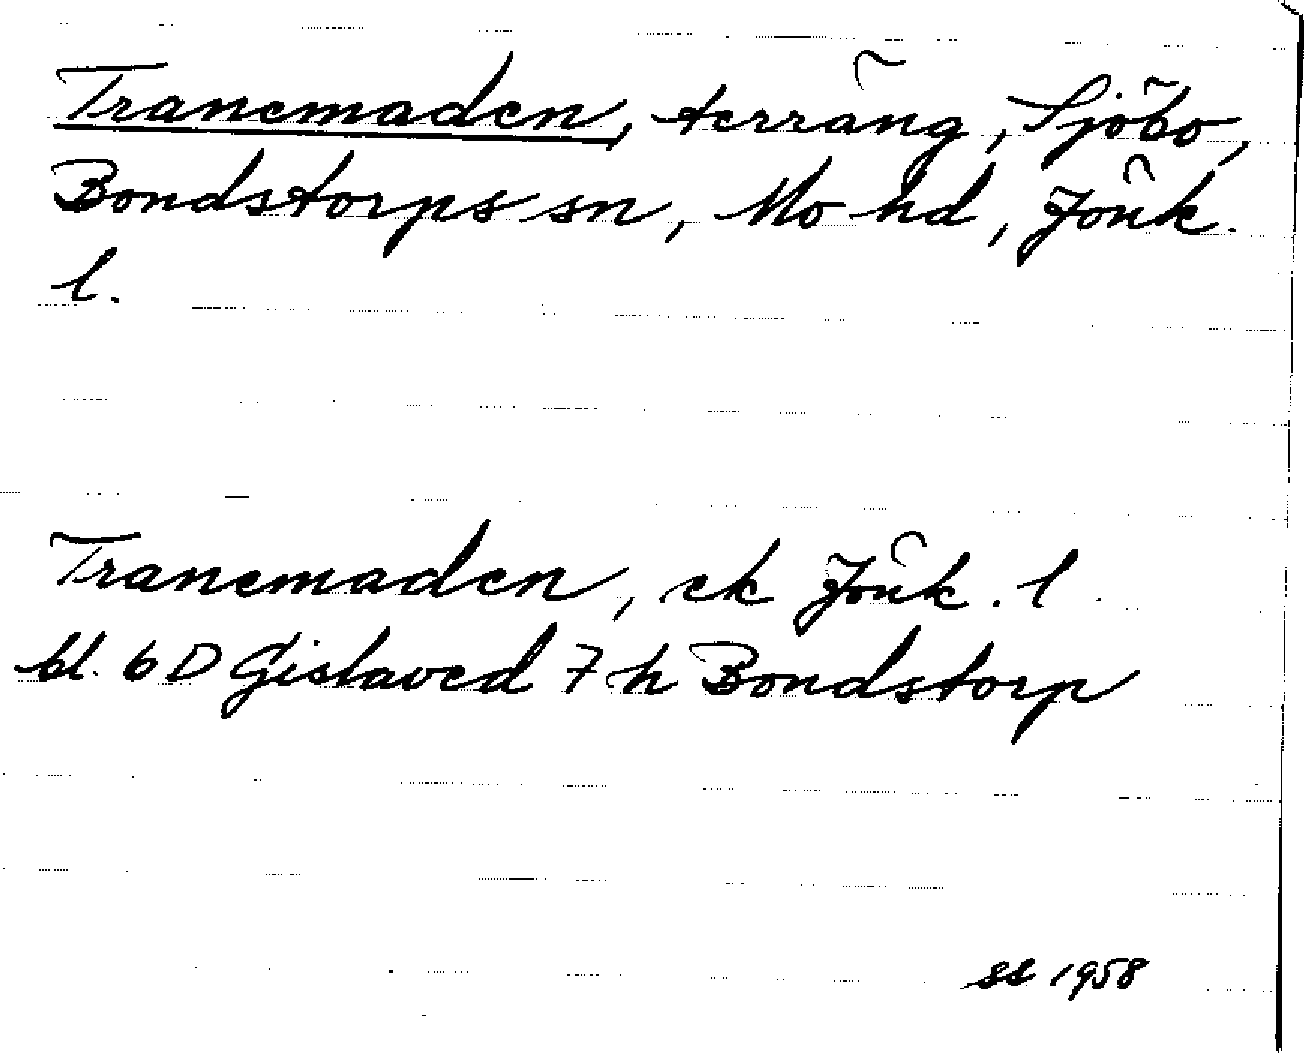 Tranemaden, terräng, Sjöbo,
Bondstorps sn, Mo hd, Jönk.
l.
Tranemaden, ek Jönk. l
bl. 6D Gislaved 7h Bondstorp
1958